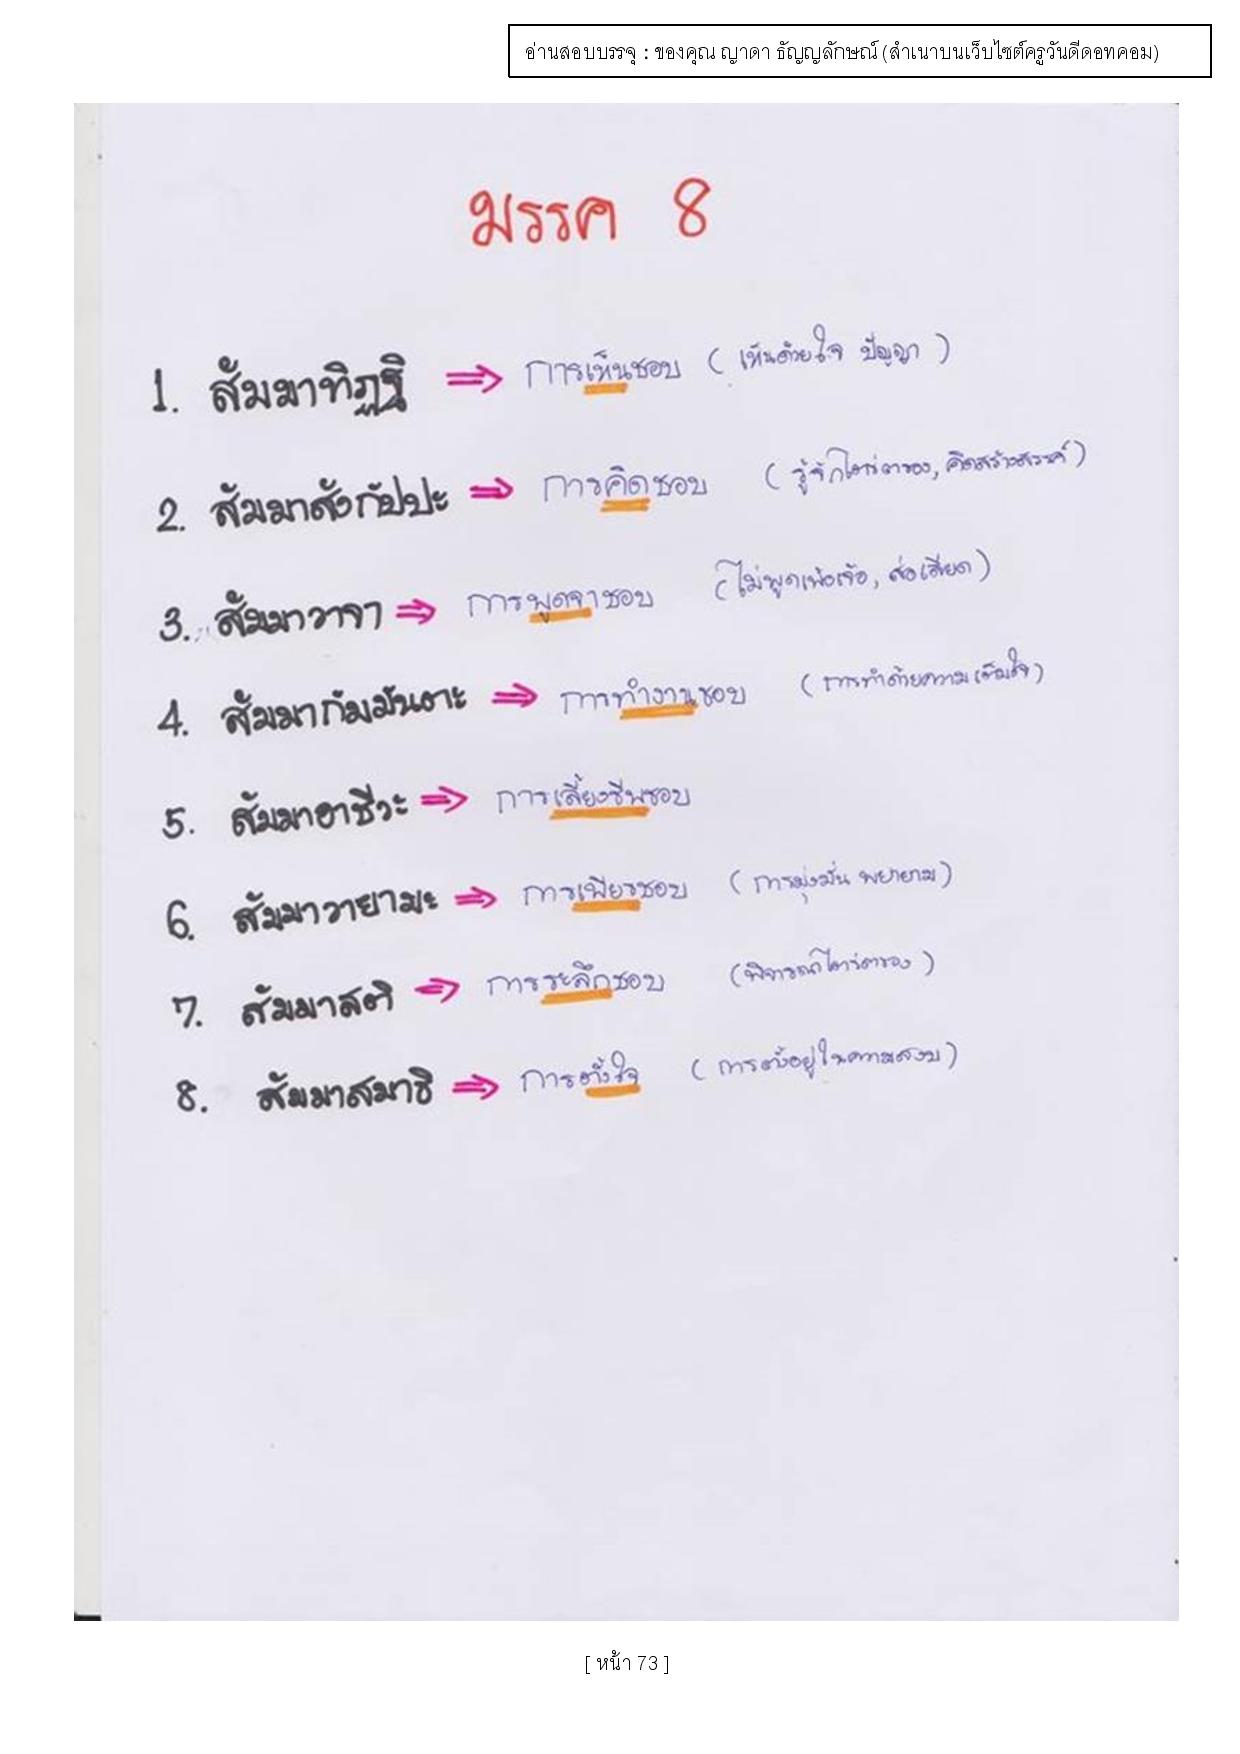 อ่านสอบบรรจุ : ของคุณ ญาดา ธัญญลักษณ์ (สำเนาบนเว็บไซต์ครูวันดีดอทคอม)
มรรค 8
1. สัมมาทิฏฐิ ⇒ การเห็นชอบ ( เห็นด้วยใจ ปัญญา )
2. สัมมาสังกัปปะ ⇒ การคิดชอบ ( รู้จักไตร่ตรอง, คิดสร้างสรรค์ )
3. สัมมาวาจา ⇒ การพูดจาชอบ (ไม่พูดเพ้อเจ้อ, ส่อเสียด)
4. สัมมากัมมันตะ ⇒ การทำงานชอบ (การทำด้วยความเต็มใจ)
5. สัมมาอาชีวะ ⇒ การเลี้ยงชีพชอบ
6. สัมมาวายามะ ⇒ การเพียรชอบ (การมุ่งมั่น พยายาม)
7. สัมมาสติ ⇒ การระลึกชอบ (พิจารณาไตร่ตรอง )
8. สัมมาสมาธิ ⇒ การตั้งใจ ( การตั้งอยู่ในความสงบ)
[ หน้า 73 ]